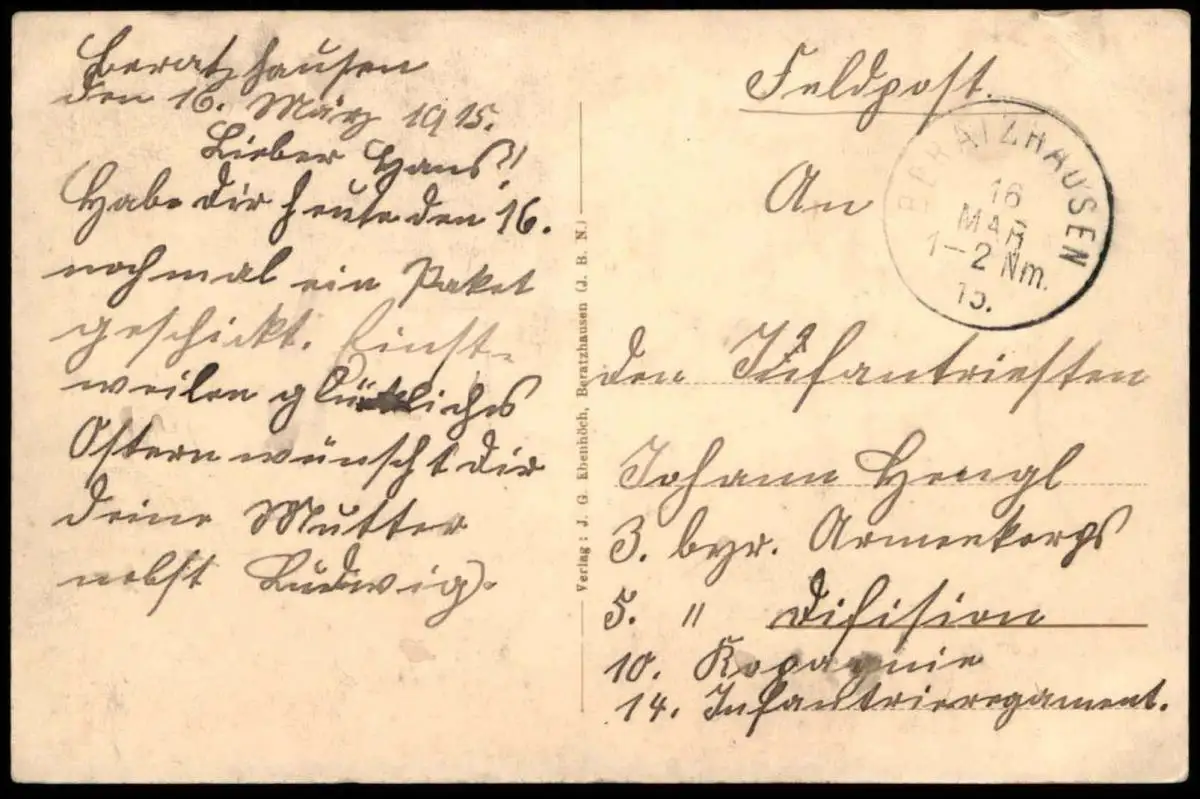 Beratzhausen
den 16. März 1915.
Lieber Hans!
Habe dir heute den 16.
nochmal ein Paket
geschickt. Einst-
weilen glückliches
Ostern wünscht dir
deine Mutter
nebst Ludwig.
Verlag: J. G. Ebenhöch, Beratzhausen (J. B. N.)
Feldpost.
BERATZHAUSEN
16
MAR
1–2 Nm.
15.
An
den Infantriesten
Johann Hengl
3. byr. Armeekorps
5. " Difision
10. Kopagnie
14. Infantrieregament.